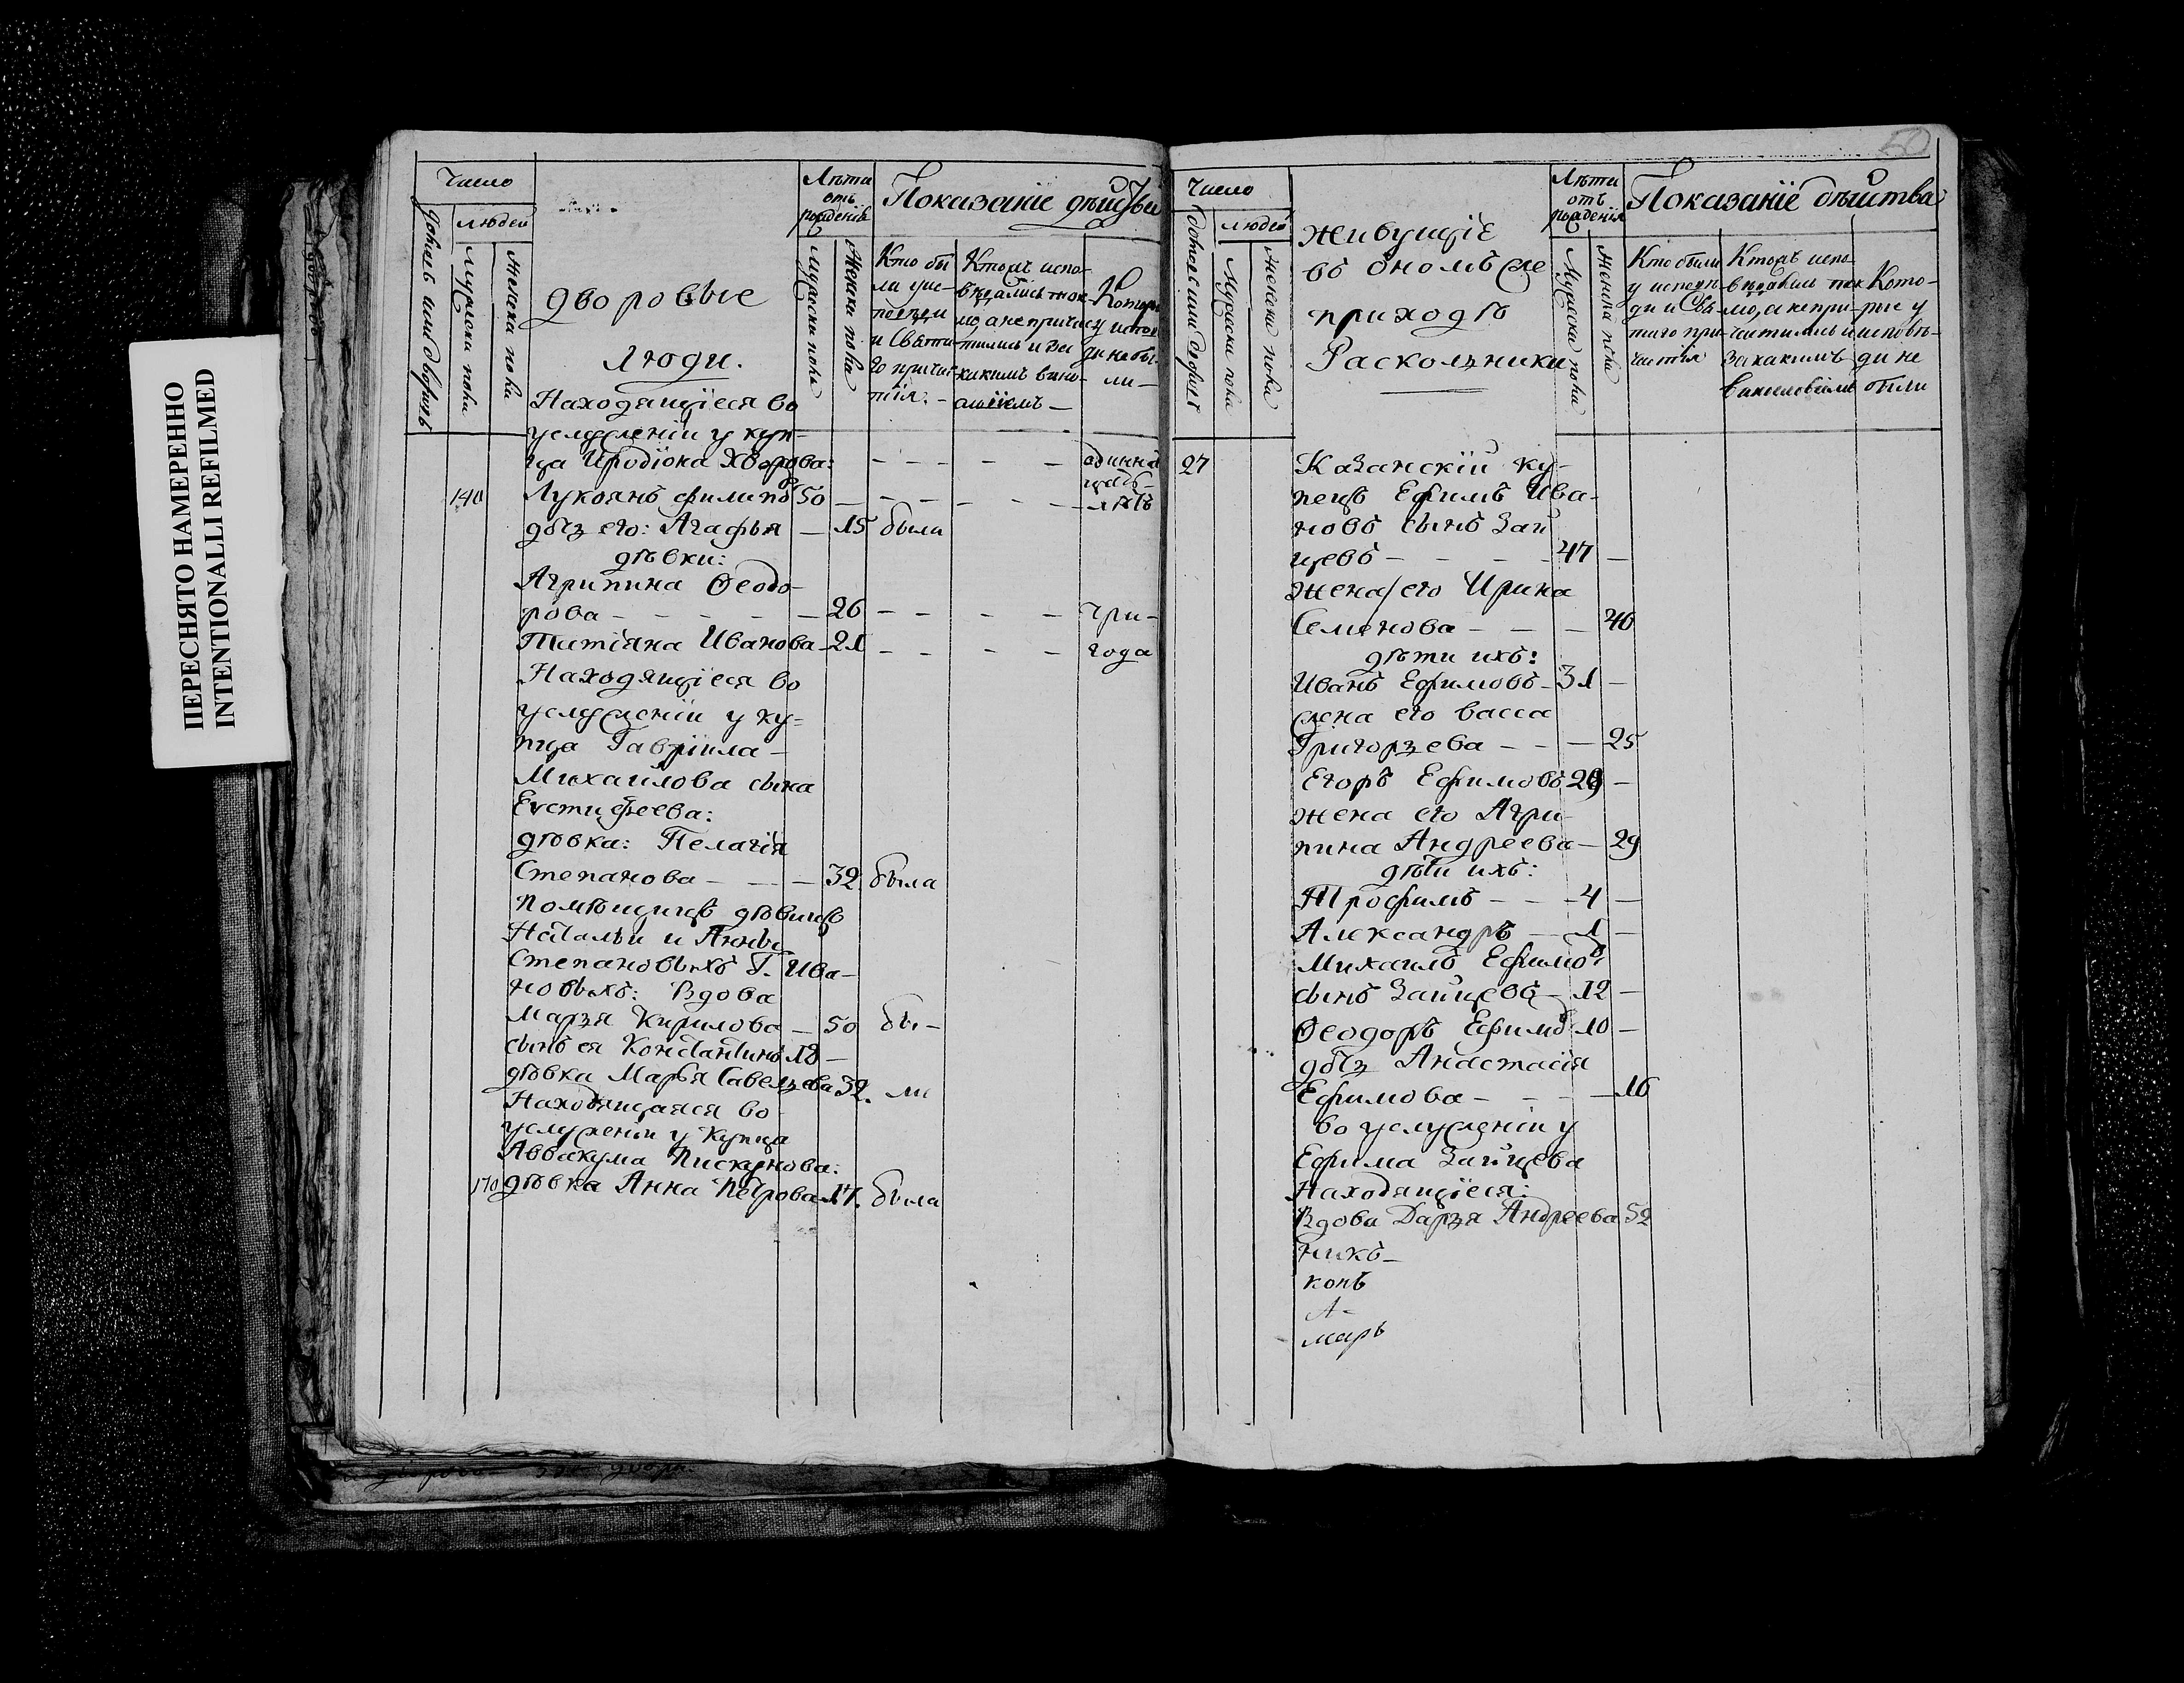 ПЕРЕСНЯТО НАМЕРЕННО
INTENTIONALLI REFILMED
Число
людей
домовъ или дворовъ
Мужеска пола
Женска пола
дворовые
Люди.
Лѣта
отъ
рожденія
Мужеска пола
Женска пола
Показаніе дѣйства
Кто бы
ли у ис-
повѣди
и Свята-
го причас-
тія. -
Кто исповѣдались ток-
мо, а не причас-
тились и за
какимъ вино-
словіемъ -
Которые
у исповѣ
ди не бы
ли -
Находящіеся во
услуженіи у куп-
ца Иродіона Хворова: - - - - - одинна
140 Лукоянъ Филипов 50 - - - - - - лѣтъ
дочь его: Агафья - 15 были
дѣвки:
Агрипина Ѳеодо-
рова - - - - - 26 - - - - три-
Татіана Иванова - 21 - - - - года
Находящіеся во
услуженіи у ку-
пца Гавріила -
Михаилова сына
Евстифеева:
дѣвка: Пелагія
Степанова - - - 32 была
Помѣщицъ дѣвицъ
Натальи и Анны
Степановыхъ Г. Ива-
новыхъ: Вдова
Марья Кирилова - 50 бы-
сынъ ея Константинъ 18 -
дѣвка Марья Савельева 32. ли
Находящаяся во
услуженіи у купца
Аввакума Пискунова:
170 дѣвка Анна Петрова 17. была
50
Число
людей
домовъ или дворовъ
Мужеска пола
Женска пола
живущіе
въ ономъ же
приходѣ
Раскольники
Лѣта
отъ
рожденія
Мужеска пола
Женска пола
Показаніе дѣйства
Кто были
у исповѣ
ди и Свя-
таго при-
частія
Кто испо-
вѣдались ток
мо, а не при-
частились и
за какимъ
винословіемъ
Кото-
рые у
исповѣ-
ди не
были
27 Казанскій ку-
пецъ Ефимъ Ива-
новъ сынъ Зай
цевъ - - - - 47 -
жена его Ирина
Семенова - - - 46
дѣти ихъ:
Иванъ Ефимовъ - 31 -
жена его Васса
Григорьева - - - 25
Егоръ Ефимовъ 29 -
жена его Агри-
пина Андреева - 29
дѣти ихъ:
Трофимъ - - - 4 -
Александръ - - 1 -
Михаилъ Ефимов
сынъ Зайцевъ - 12 -
Ѳеодоръ Ефимов 10 -
дочь Анастасія
Ефимова - - - - 16
во услуженіи у
Ефима Зайцева
Находящіеся:
Вдова Дарья Андреева 52
никъ -
копъ
А -
марь